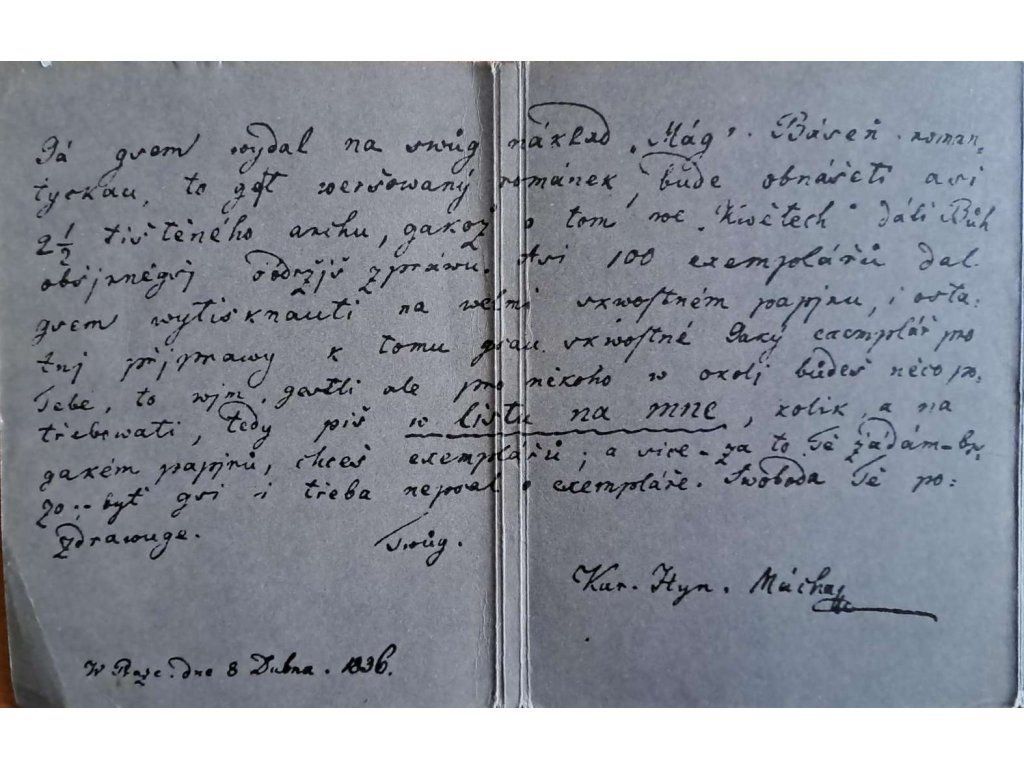 Já gsem wydal na swůg náklad „Mág“. Báseň roman-
tyckau, to gest weršowaný románek, bude obnášeti asi
2 1/2 tištěného archu, gakož o tom we „Kwětech“ dáli Bůh
obšjrněgšj obdržjš zpráwu. Asi 100 exemplářů dal
gsem wytisknauti na welmi skwostném papjru, i osta-
tnj přjprawy k tomu gsau skwostné. Gaký exemplář pro
Tebe, to wjm, gestli ale pro někoho w okolj budeš něco po-
třebowati, tedy piš w listu na mne, kolik, a na
gakém papjrů, chceš exemplářů; a sice – za to Tě žádám – br-
zo – byť gsi i třeba neposlal o exempláře. Swoboda Tě po=
zdrawuge. Twůg.
Kar. Hyn. Mácha
W Praze. dne 8 Dubna. 1836.